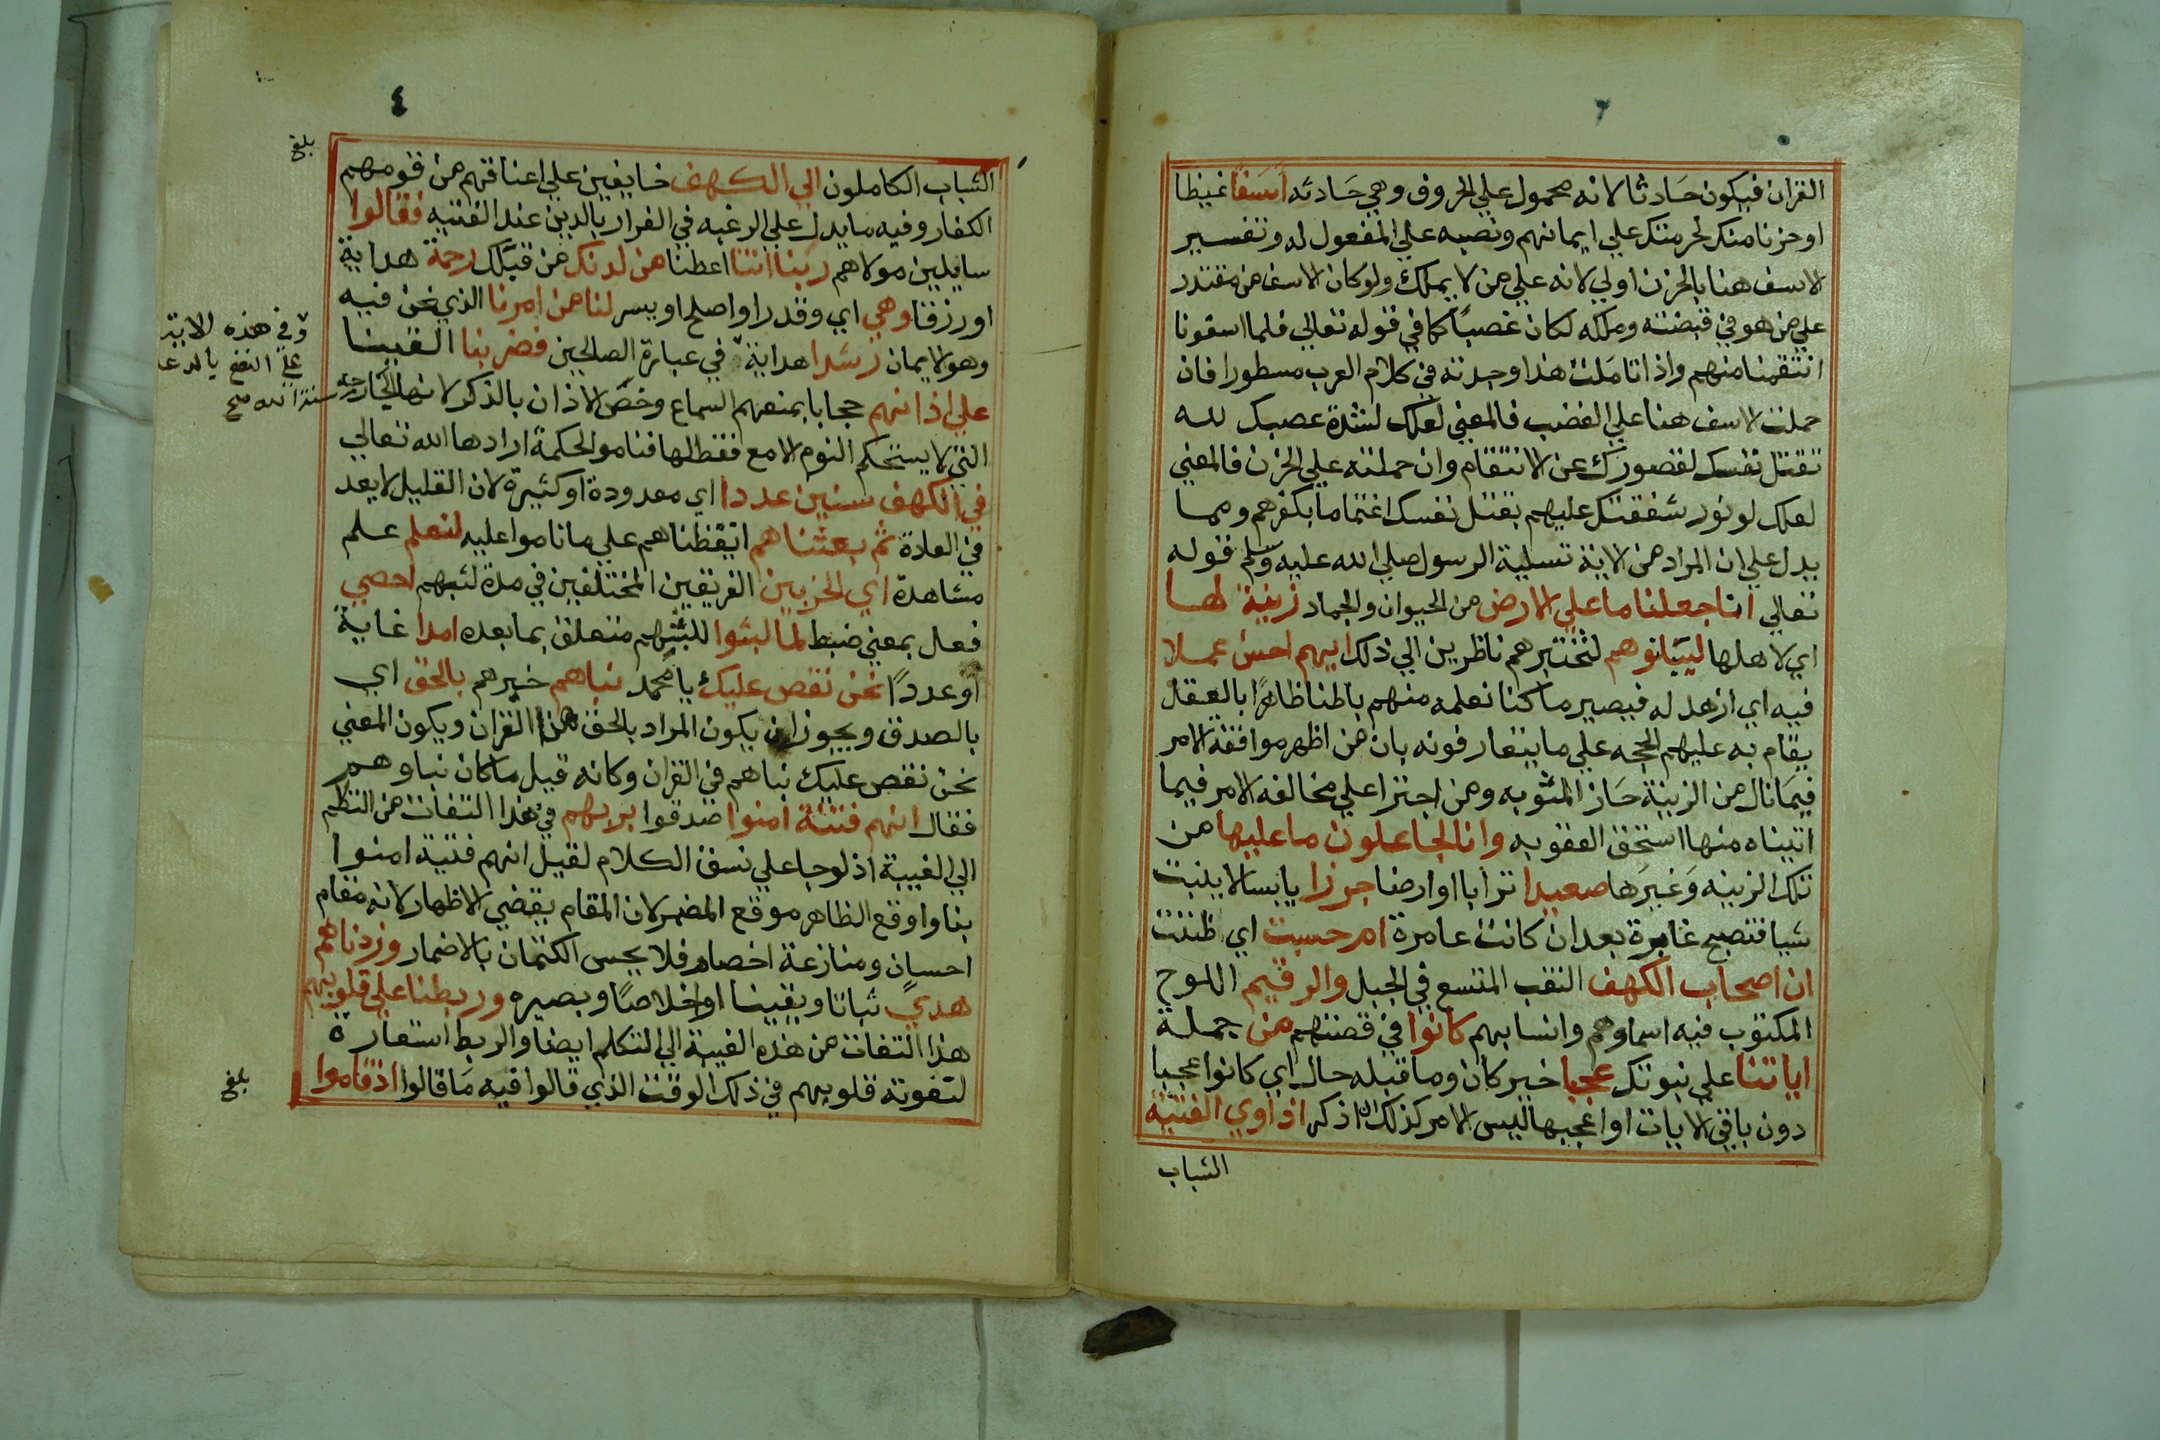 القران فيكون حادثا لانه محمول علي الحروف وهي حادثه أسفا غيظا
او حزنا منك لحرمتك علي ايمانهم ونصبه علي المفعول له وتفسير
الاسف هنا بالحزن اولي لانه علي من لا يملك ولو كان الاسف من مقتدر
علي من هو في قبضته وملكه لكان غصبا كما في قوله تعالي فلما اسفونا
انتقمنا منهم واذا تاملت هذا وجدته في كلام العرب مسطورا فان
حملت الاسف هنا علي الغضب فالمعني لعلك لشدة عصبك لله
تقتل نفسك لقصورك عن الانتقام وان حملته علي الحزن فالمعني
لعلك لوفور شفقتك عليهم بقتل نفسك اغتماما بكفرهم ومما
يدل علي ان المراد من الاية تسلية الرسول صلي الله عليه وسلم قوله
تعالي انا جعلنا ما علي الارض من الحيوان والجماد زينة لها
اي لاهلها لنبلوهم لنختبرهم ناظرين الي ذلك ايهم احسن عملا
فيه اي ازهد له فيصير ما كنا نعلمه منهم باطنا ظاهرا بالعقل
يقام به عليهم الحجه علي ما يتعارفونه بان من اظهر موافقة الامر
فيما نال من الزينة حاز المثوبه ومن اجترا علي مخالفه الامر فيما
اتيناه منها استحق العقوبه وانا لجاعلون ما عليها من
تلك الزينه وغيرها صعيدا ترابا او ارضا جرزا يابسا لا ينبت
شيا فتصبح غابرة بعد ان كانت عامرة ام حسبت اي ظننت
ان اصحاب الكهف النقب المتسع في الجبل والرقيم اللوح
المكتوب فيه اسماوهم وانسابهم كانوا في قصتهم من جملة
اياتنا علي نبوتك عجبا خبر كان وما قبله حال اي كانوا عجبا
دون باقي الايات او اعجبها ليس الامر كذلك اذكر اذ اوي الفتية
الشباب
٤
بلغ
الشباب الكاملون الي الكهف خايفين علي اعناقهم من قومهم
الكفار وفيه ما يدل علي الرغبه في الفرار بالدين عند الفتنه فقالوا
سايلين مولاهم ربنا اتنا اعطنا من لدنك من قبلك رحمة هداية
او رزقا وهي اي وقدر او اصلح او يسر لنا من امرنا الذي نحن فيه
وهو الايمان رشدا هداية في عبارة الصالحين فضربنا القينا
علي اذانهم حجابا يمنعهم السماع وخص الاذان بالذكر لانها الجارحة
التي لا يستحكم النوم الا مع فقطلها فناموا لحكمة ارادها الله تعالي
في الكهف سنين عددا اي معدودة او كثيرة لان القليل لا يعد
في العادة ثم بعثناهم ايقظناهم علي ما ناموا عليه لنعلم علم
مشاهدة اي الحزبين الفريقين المختلفين في مدة لبثهم احصي
فعل بمعني ضبط لما لبثوا للبثهم متعلق بما بعده امدا غاية
او عددا نحن نقص عليك يا محمد نباهم خبرهم بالحق اي
بالصدق ويجوز ان يكون المراد بالحق هذا القران ويكون المعني
نحن نقص عليك نباهم في القران وكانه قيل ما كان نباوهم
فقال انهم فتية امنوا صدقوا بربهم في هذا التفات من التكلم
الي الغيبة اذ لو جا علي نسق الكلام لقيل انهم فتية امنوا
بنا واوقع الظاهر موقع المضمر لان المقام يقضي الاظهار لانه مقام
احسان ومنازعة اخصام فلا يحس الكتمان بالاضمار وزدناهم
هدي ثباتا ويقينا او اخلاصا وبصيره وربطنا علي قلوبهم
هذا التفات من هذه الغيبة الي التكلم ايضا والربط استعارة
لتقوية قلوبهم في ذلك الوقت الذي قالوا فيه ما قالوا اذ قاموا
وفي هذه الاية
علي النفع بالدعا
سنة الله صح
بلغ